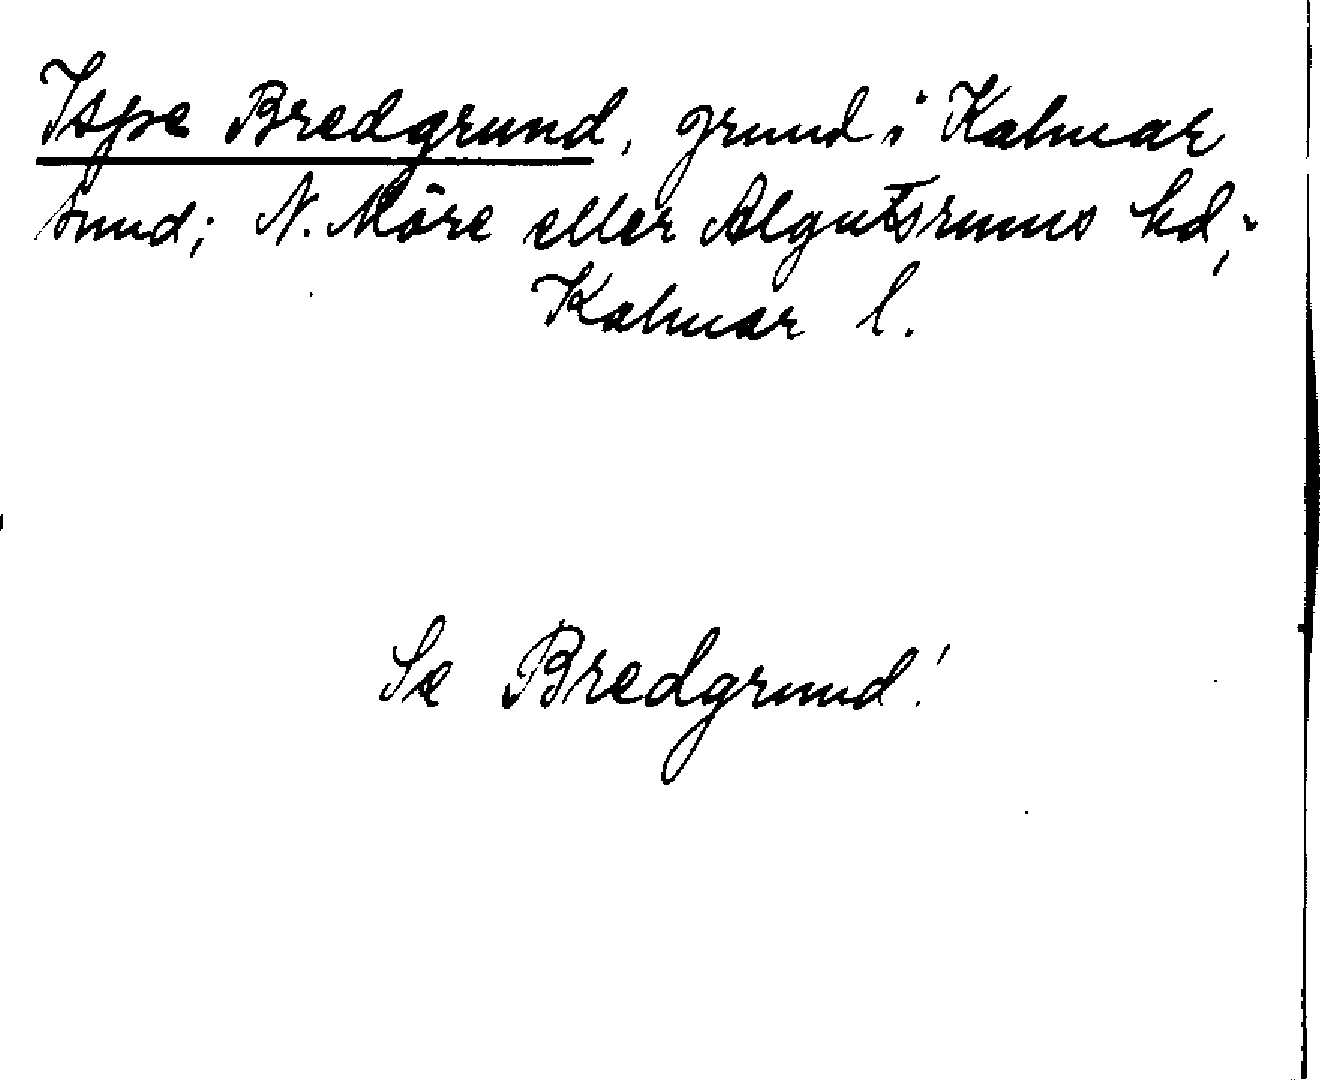 Ispe Bredgrund, grund i Kalmar
sund; N. Möre eller Algutsrums hd;
Kalmar l.
Se Bredgrund!